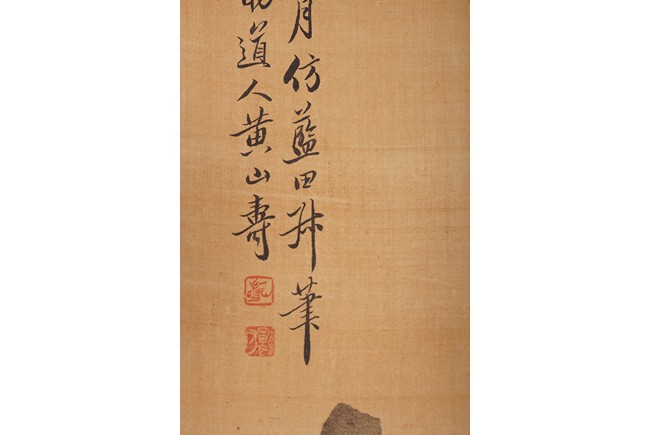 月仿藍田叔筆
道人黄山壽